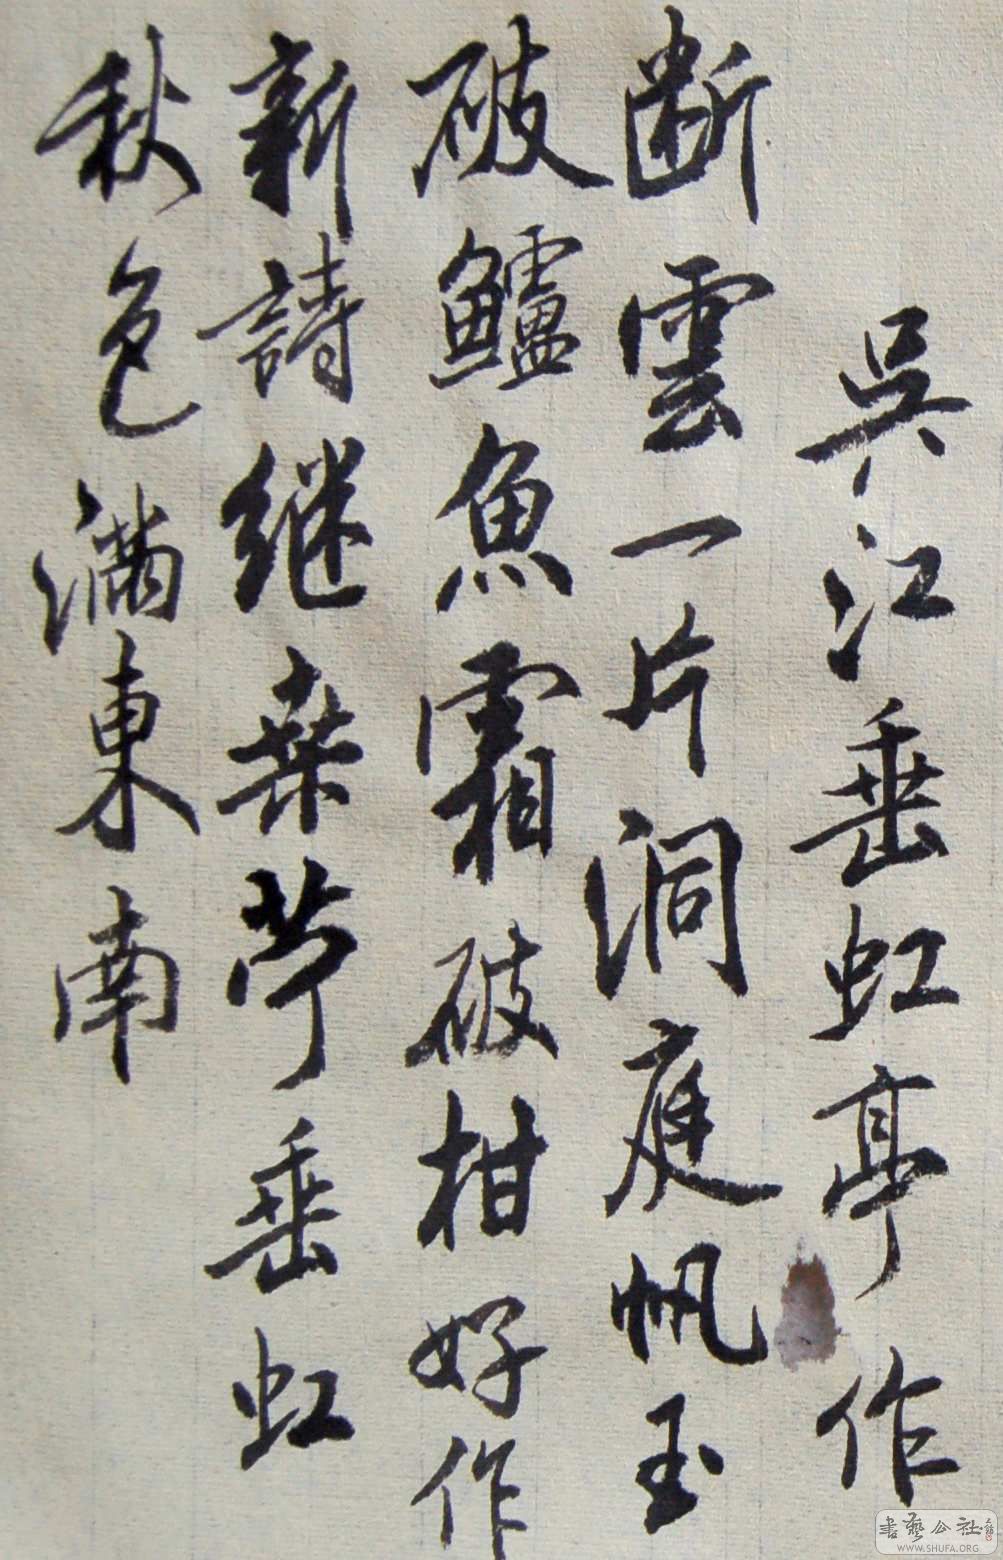 吳江垂虹亭作
断雲一片洞庭帆玉
破鱸魚霜破柑好作
新詩継桑苧垂虹
秋色满東南
書藝公社
WWW.SHUFA.ORG